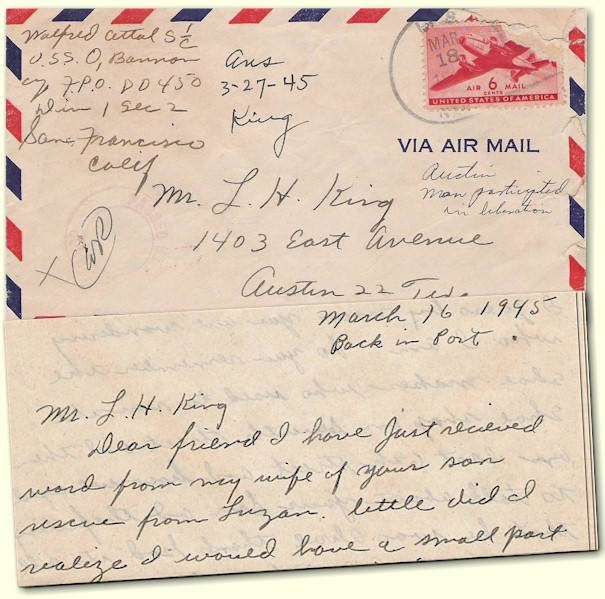 Walfred Cettal S 1/C
U.S.S. O, Bannon
c/o F.P.O. DD 450
Div 1 Sec 2
San, Francisco
Calif
Ans
3-27-45
King
MAR
18
AIR 6 MAIL
CENTS
UNITED STATES OF AMERICA
VIA AIR MAIL
Austin
man participated
in liberation
Mr. L. H. King
1403 East Avenue
Austin 22 Tex.
March 16 1945
Back in Port.
Mr. L. H. King
Dear friend I have Just recieved
word from my wife of your son
rescue from Luzan. little did I
realize I would have a small part